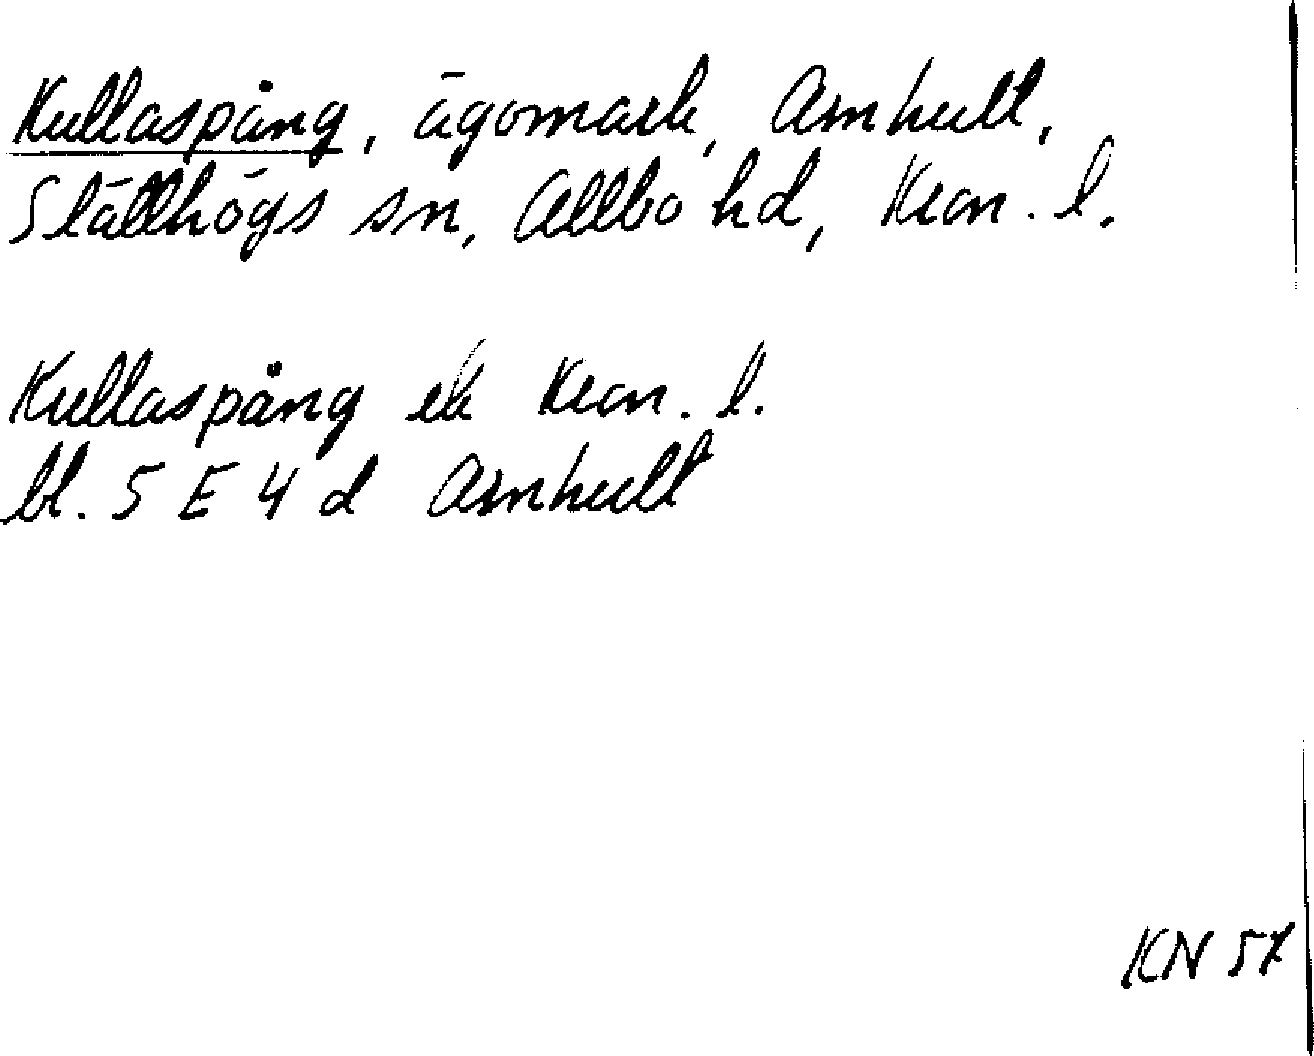 Kullaspång, ägomark, Amhult,
Slätthögs sn, Allbo hd, Kron. l.
Kullaspång ek Kron. l.
bl. 5 E 4 d Amhult
KN 57